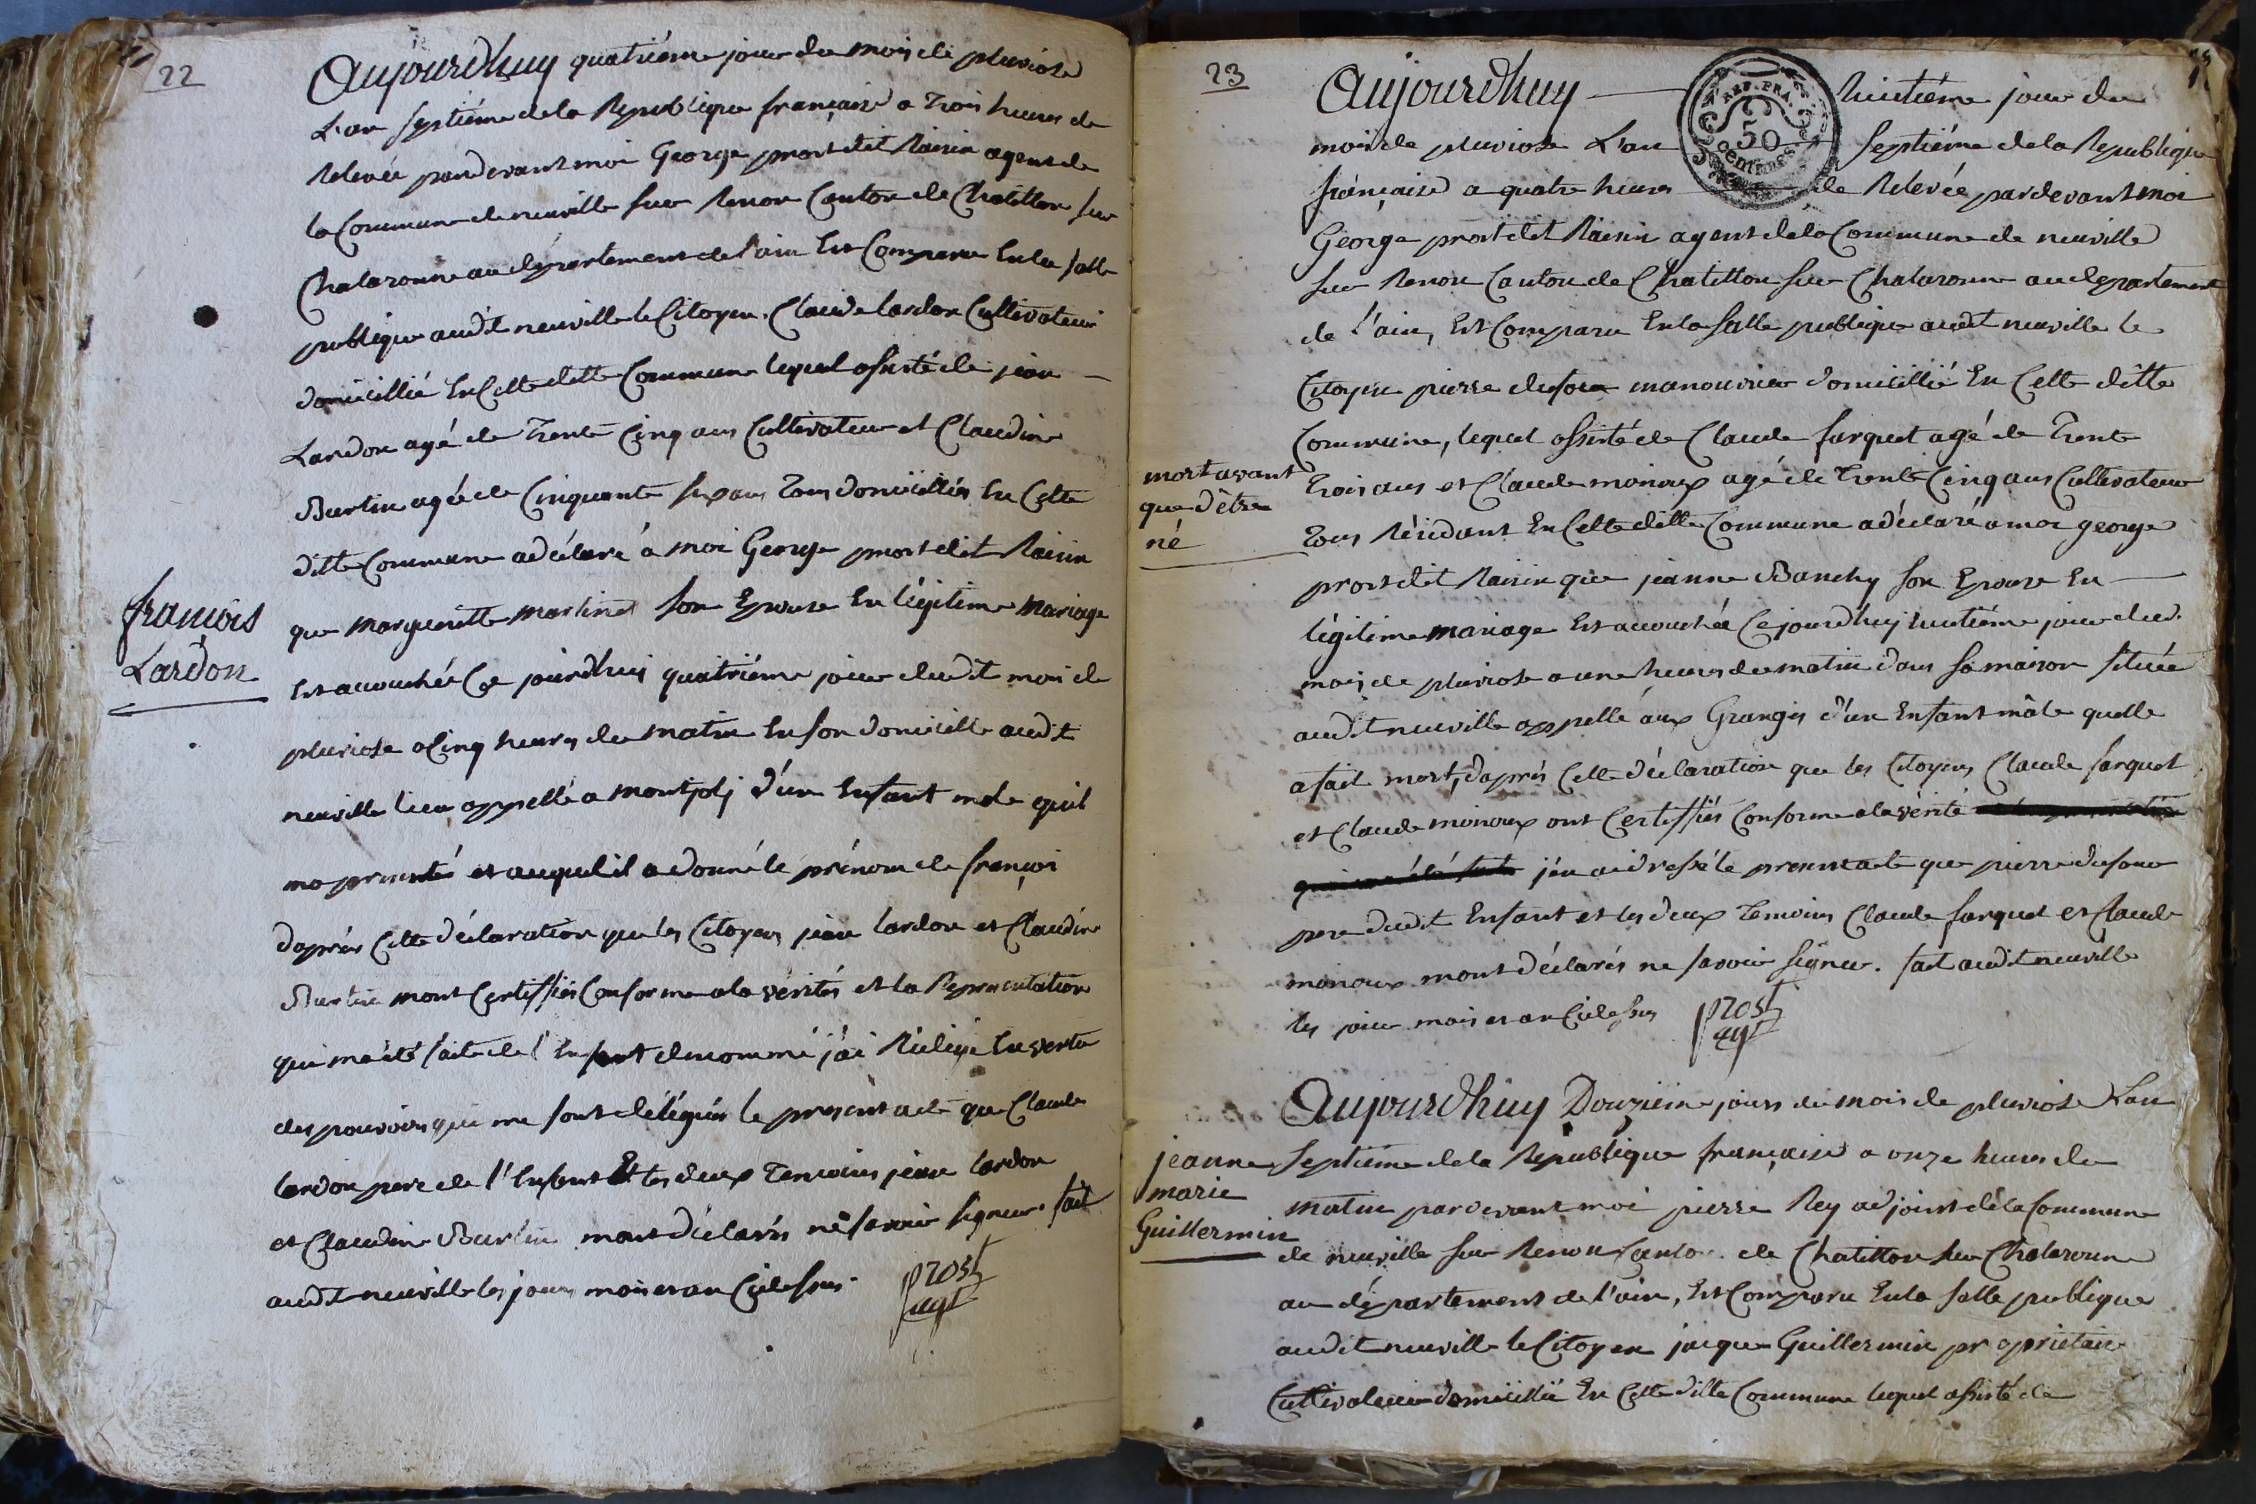 22
Aujourdhuy quatriéme jour du mois de pluviose
L'an septiéme de la Republique française a trois heures de
Relevée pardevant moi George prost dit Raisin agent de
la Commune de neuville sur Renon Canton de Chatillon sur
Chalaronne au département de l'ain Est Comparu En la salle
publique audit neuville le Citoyen Claude lardon Cultivateur
domicillié En Cette ditte Commune lequel assisté de jean
Lardon agé de trente Cinq ans Cultivateur et Claudine
Burtin agée de Cinquante six ans tous domicilliés En Cette
ditte Commune a déclaré à moi George prost dit Raisin
que margueritte martinet son Epouse En légitime mariage
françois
Lardon
Est accouchée Ce jourdhui quatriéme jour dudit mois de
pluviose a Cinq heures du matin En son domicille audit
neuville lieu appellé a montjoly d'un Enfant male quil
ma presenté et auquel il a donné le prénom de françoi
daprès Cette déclaration que les Citoyens jean lardon et Claudine
Burtin mont Certiffiés Conforme a la véritès et la Représentation
qui ma été faite de l'Enfant denommé j'ai Rédigé En vertu
des pouvoirs qui me sont délégués le present acte que Claude
lardon pere de l'Enfant Et les deux temoins jean lardon
et Claudine Burtin mont déclarés ne savoir signer. fait
audit neuville les jours mois et an Cidessus.
prost
agt
23
Aujourdhuy huitiéme jour du
REP. FRA.
50
CENTIMES
mois de pluviose L'an septiéme de la Republique
française a quatre heures de Relevée pardevant moi
George prost dit Raisin agent de la Commune de neuville
sur Renon Canton de Chatillon sur Chalaronne au departement
de l'ain, Est Comparu En la salle publique audit neuville le
Citoyen pierre dufour manouvrier domicillié En Cette ditte
Commune, lequel assisté de Claude farquet agé de trente
mort avant
que d'être
né
trois ans et Claude monoux agé de trente Cinq ans Cultivateur
tous Résidant En Cette ditte Commune a déclaré a moi george
prost dit Raisin que jeanne Banchy son Epouse En
légitime mariage Est accouchée Ce jourdhuy huitiéme jour dud.
mois de pluviose a une heures du matin dans sa maison située
audit neuville appellé aux Granges d'un Enfant mâle quelle
a fait mort, daprès Cette déclaration que les Citoyens Claude farquet
et Claude monoux ont Certiffiés Conforme a la vérité
j'en ai dressé le present acte que pierre dufour
pere dudit Enfant et les deux temoins Claude farquet et Claude
monoux mont déclarés ne savoir signer. fait audit neuville
les jour mois et an Cidessus prost
agt
Aujourdhuy Douzieme jours du mois de pluviose L'an
jeanne
marie
Guillermin
septieme de la Republique française a onze heures du
matin pardevant moi pierre Rey adjoint de la Commune
de neuville sur Renon Canton de Chatillon sur Chalaronne
au département de l'ain, Est Comparu En la salle publique
audit neuville le Citoyen jacque Guillermin propriétaire
Cultivateur domicillié En Cette ditte Commune lequel assisté de